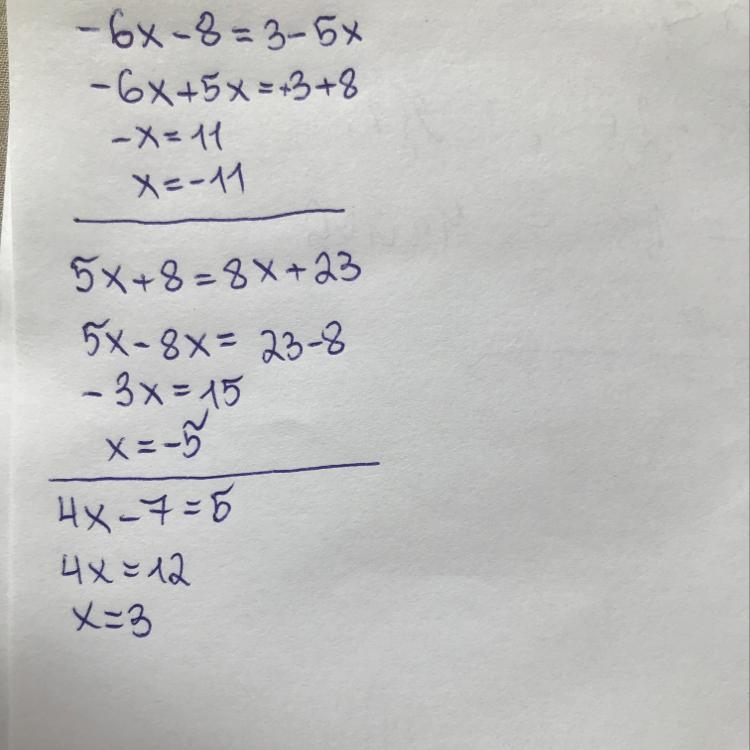 -6x-8=3-5x
-6x+5x=+3+8
-x=11
x=-11
5x+8=8x+23
5x-8x= 23-8
-3x=15
x=-5
4x-7=5
4x=12
x=3